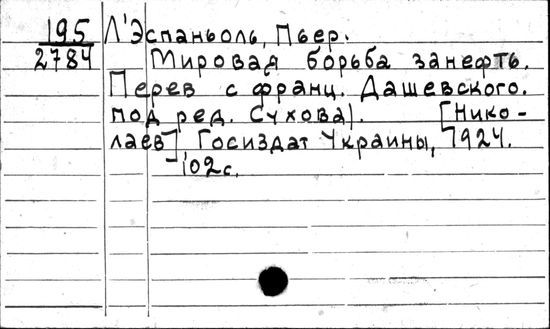 195 Л'Эспаньоль, Пьер.
2784 Мировая борьба за нефть.
Перев с франц. Дашевского.
под ред. Сухова). [Нико-
лаев], Госиздат Украины, 1924.
102с.